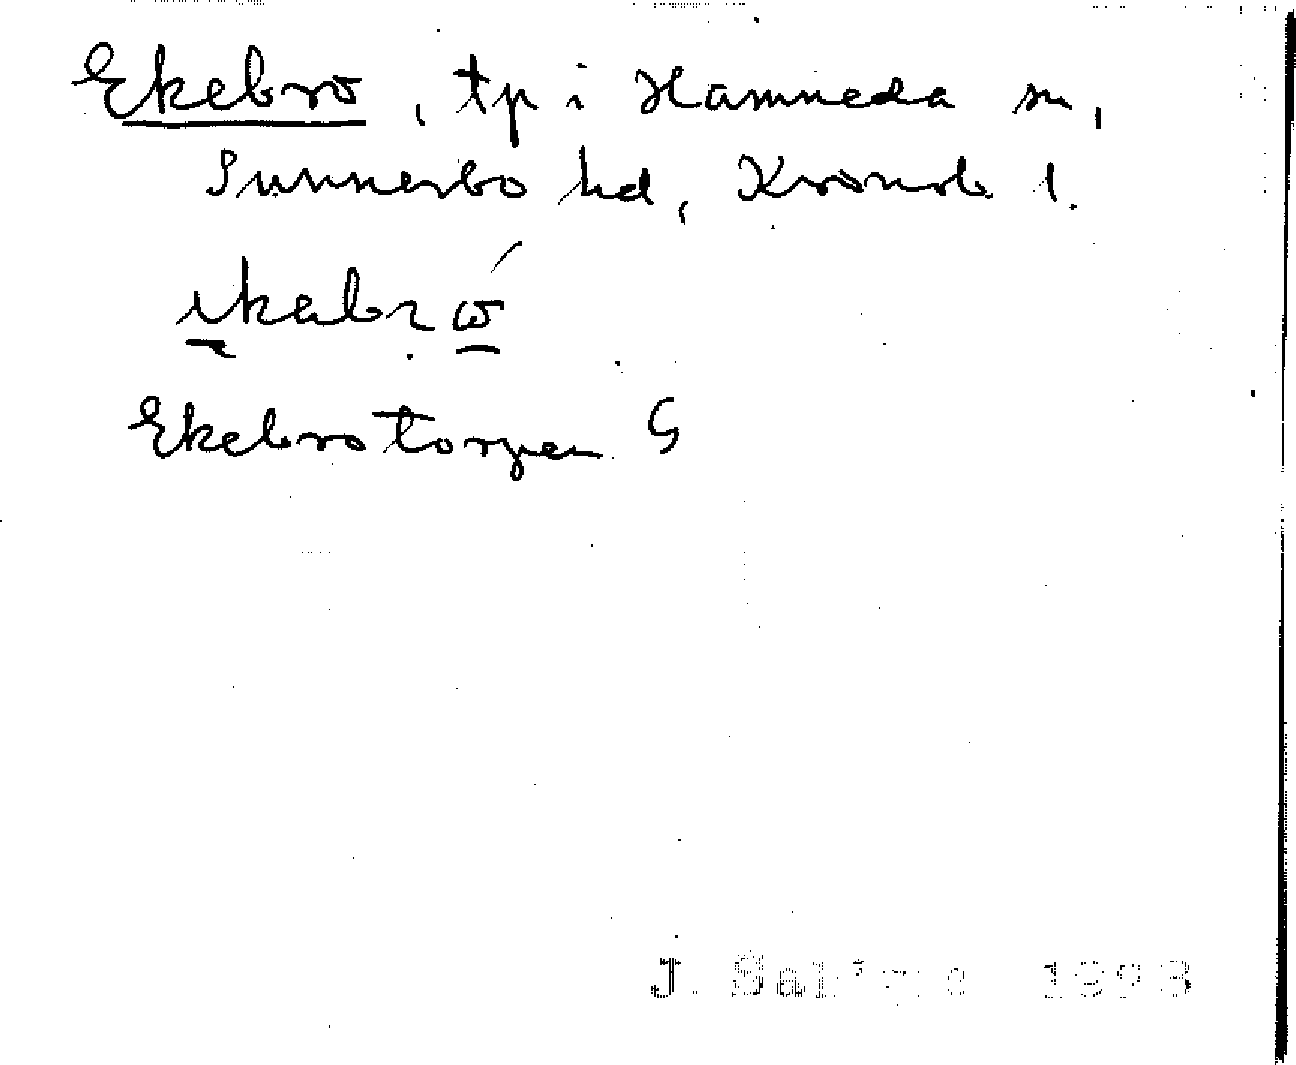 Ekebro, tp i Hamneda sn,
Sunnerbo hd, Kronob l.
ikabrώ
Ekebrotorpen G
J. Sahlgre 1928